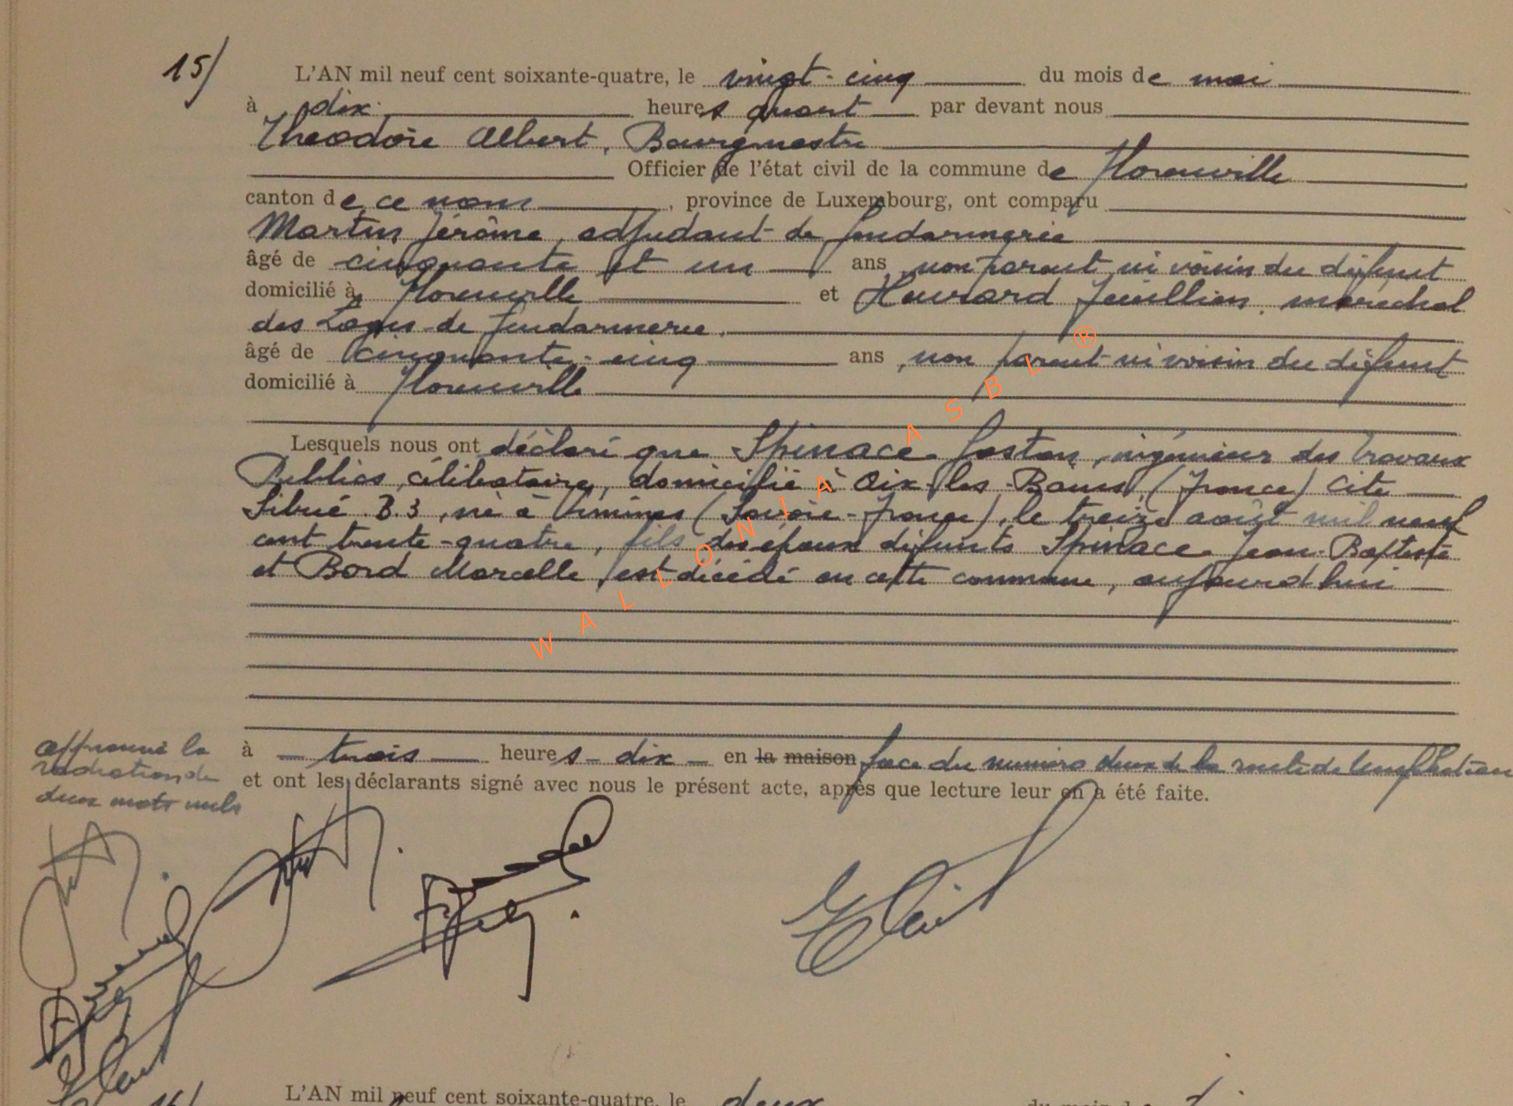 15/ L'AN mil neuf cent soixante-quatre, le vingt-cinq du mois de mai
à dix heures quart par devant nous
Théodore Albert, Bourgmestre
Officier de l'état civil de la commune de Florenville
canton de ce nom, province de Luxembourg, ont comparu
Martin Jérôme, adjudant de gendarmerie
âgé de cinquante et un ans, non parent ni voisin du défunt
domicilié à Florenville et Jeuillien, maréchal
des Logis de gendarmerie.
âgé de cinquante-cinq ans, non parent ni voisin du défunt
domicilié à Florenville
Lesquels nous ont déclaré que Spinace Gaston, ingénieur des Travaux
Publics, célibataire, domicilié à Aix-les-Bains, (France) Cité
B.3, né à Vimines (Savoie-France), le treize août mil neuf
cent trente-quatre, fils des époux défunts Spinace Jean-Baptiste
et Bord Marcelle, est décédé en cette commune, aujourd'hui
WALLONIA ASBL ®
à trois heures dix en la maison face du numéro deux de la route de
et ont les déclarants signé avec nous le présent acte, après que lecture leur en a été faite.
approuvé la
radiation de
deux mots nuls
16/ L'AN mil neuf cent soixante-quatre, le deux du mois de